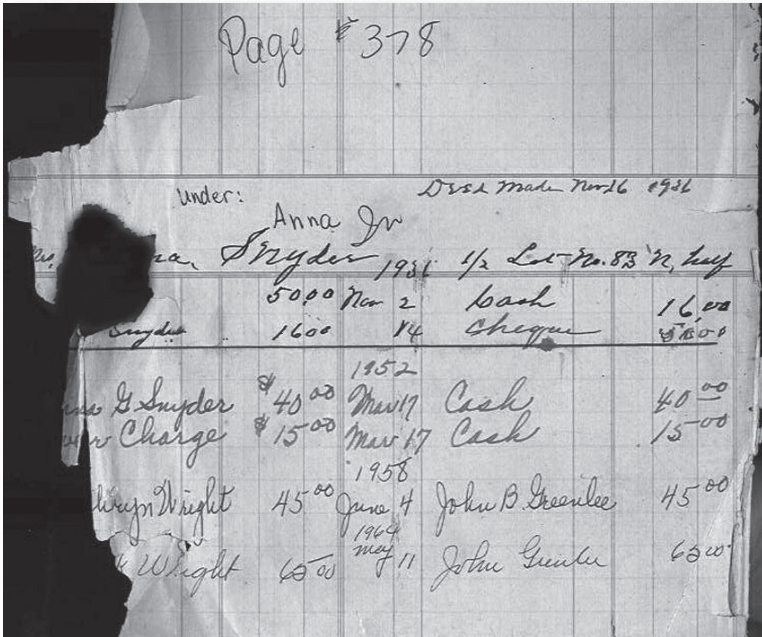 Page # 378
Under: Deed Made Nov 16 1931
Anna
Snyder 1931 1/2 Lot No. 83 N, half
50 00 Nov 2 Cash 16,00
Snyder 16 00 14 Cheque
1952
G Snyder $ 40 00 Mar 17 Cash 40 00
Charge $ 15 00 Mar 17 Cash 15 00
1958
Wright 45 00 June 4 John B. Greenlee 45 00
1964
Wright 65 00 May 11 John Greenlee 65 00